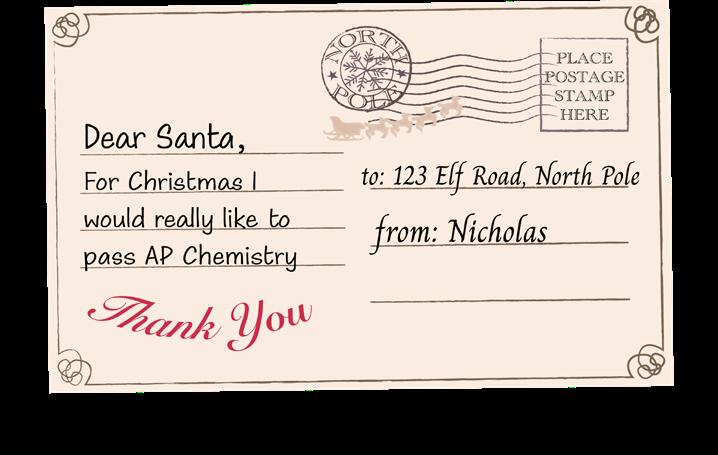 NORTH
POLE
PLACE
POSTAGE
STAMP
HERE
Dear Santa,
For Christmas I
would really like to
pass AP Chemistry
Thank You
to: 123 Elf Road, North Pole
from: Nicholas